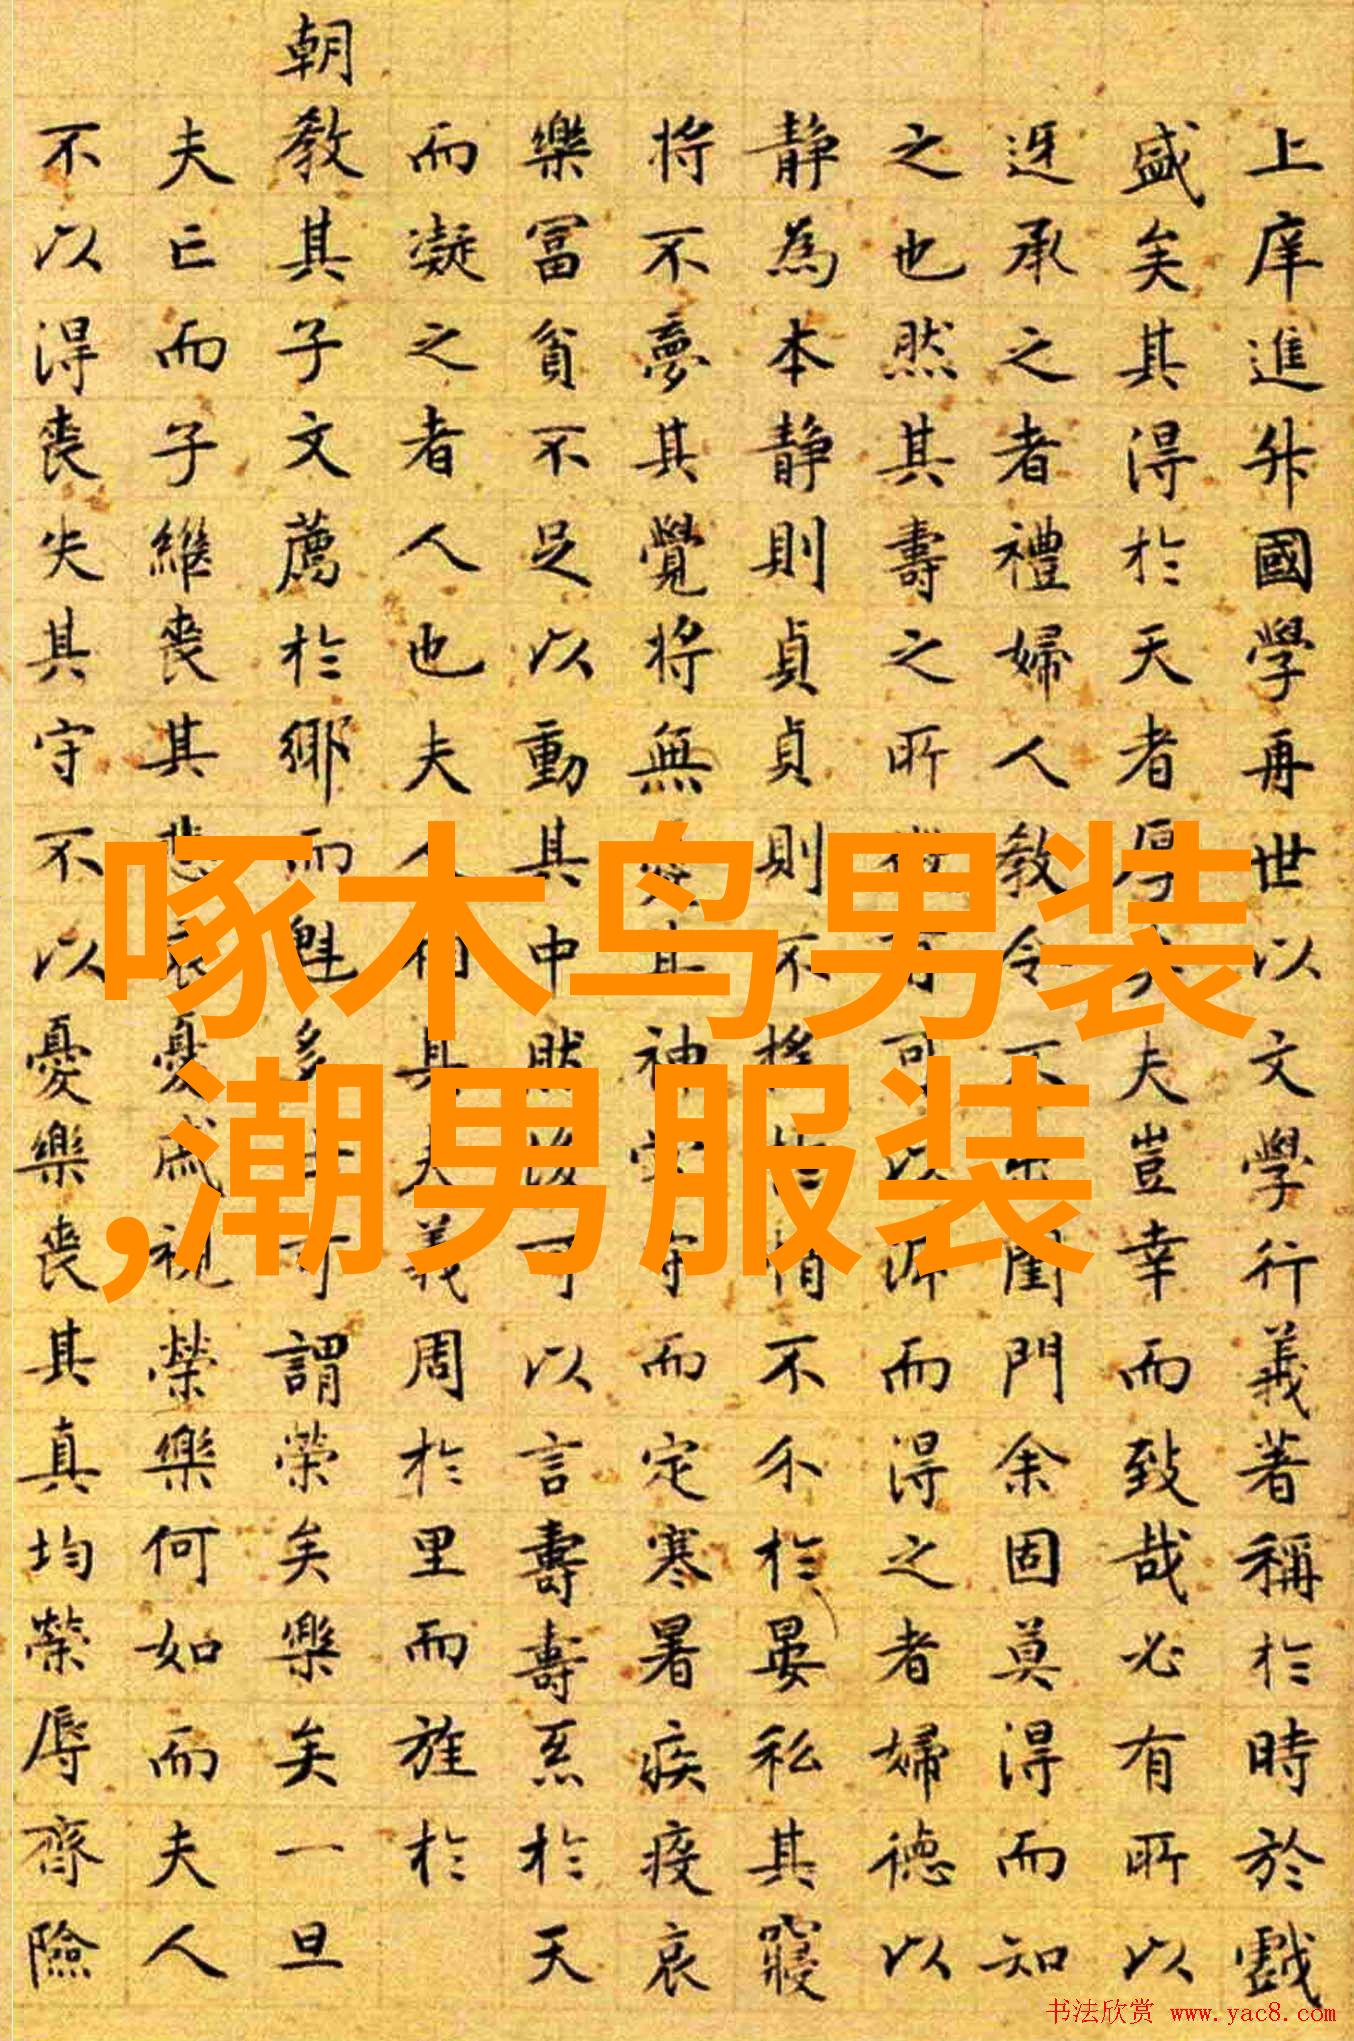 啄木鸟男装
,潮男服装
上庠進升國學再世以文學行義著稱於時於戲
盛矣其得於天者厚矣夫豈幸而致哉必有所以
迓承之者禮婦人教令不出閨門余固莫得而知
之也然其壽之所有可以而得之者婦德以
靜為本靜則貞貞則不情不介於晏私其寢
將不夢其覺將無其神守而定寒暑疾疫哀
樂冨貧不足以動其中然後可以言壽壽系於天
而凝之者人也夫人相其夫義周於里而旌於
朝教其子文薦於鄉而魁多士可謂榮矣樂矣一旦
夫亡而子繼喪其悲哀憂戚視榮樂何如而夫人
不以得喪失其守不以憂樂喪其真均榮辱齊險
书法欣赏 www.yac8.com